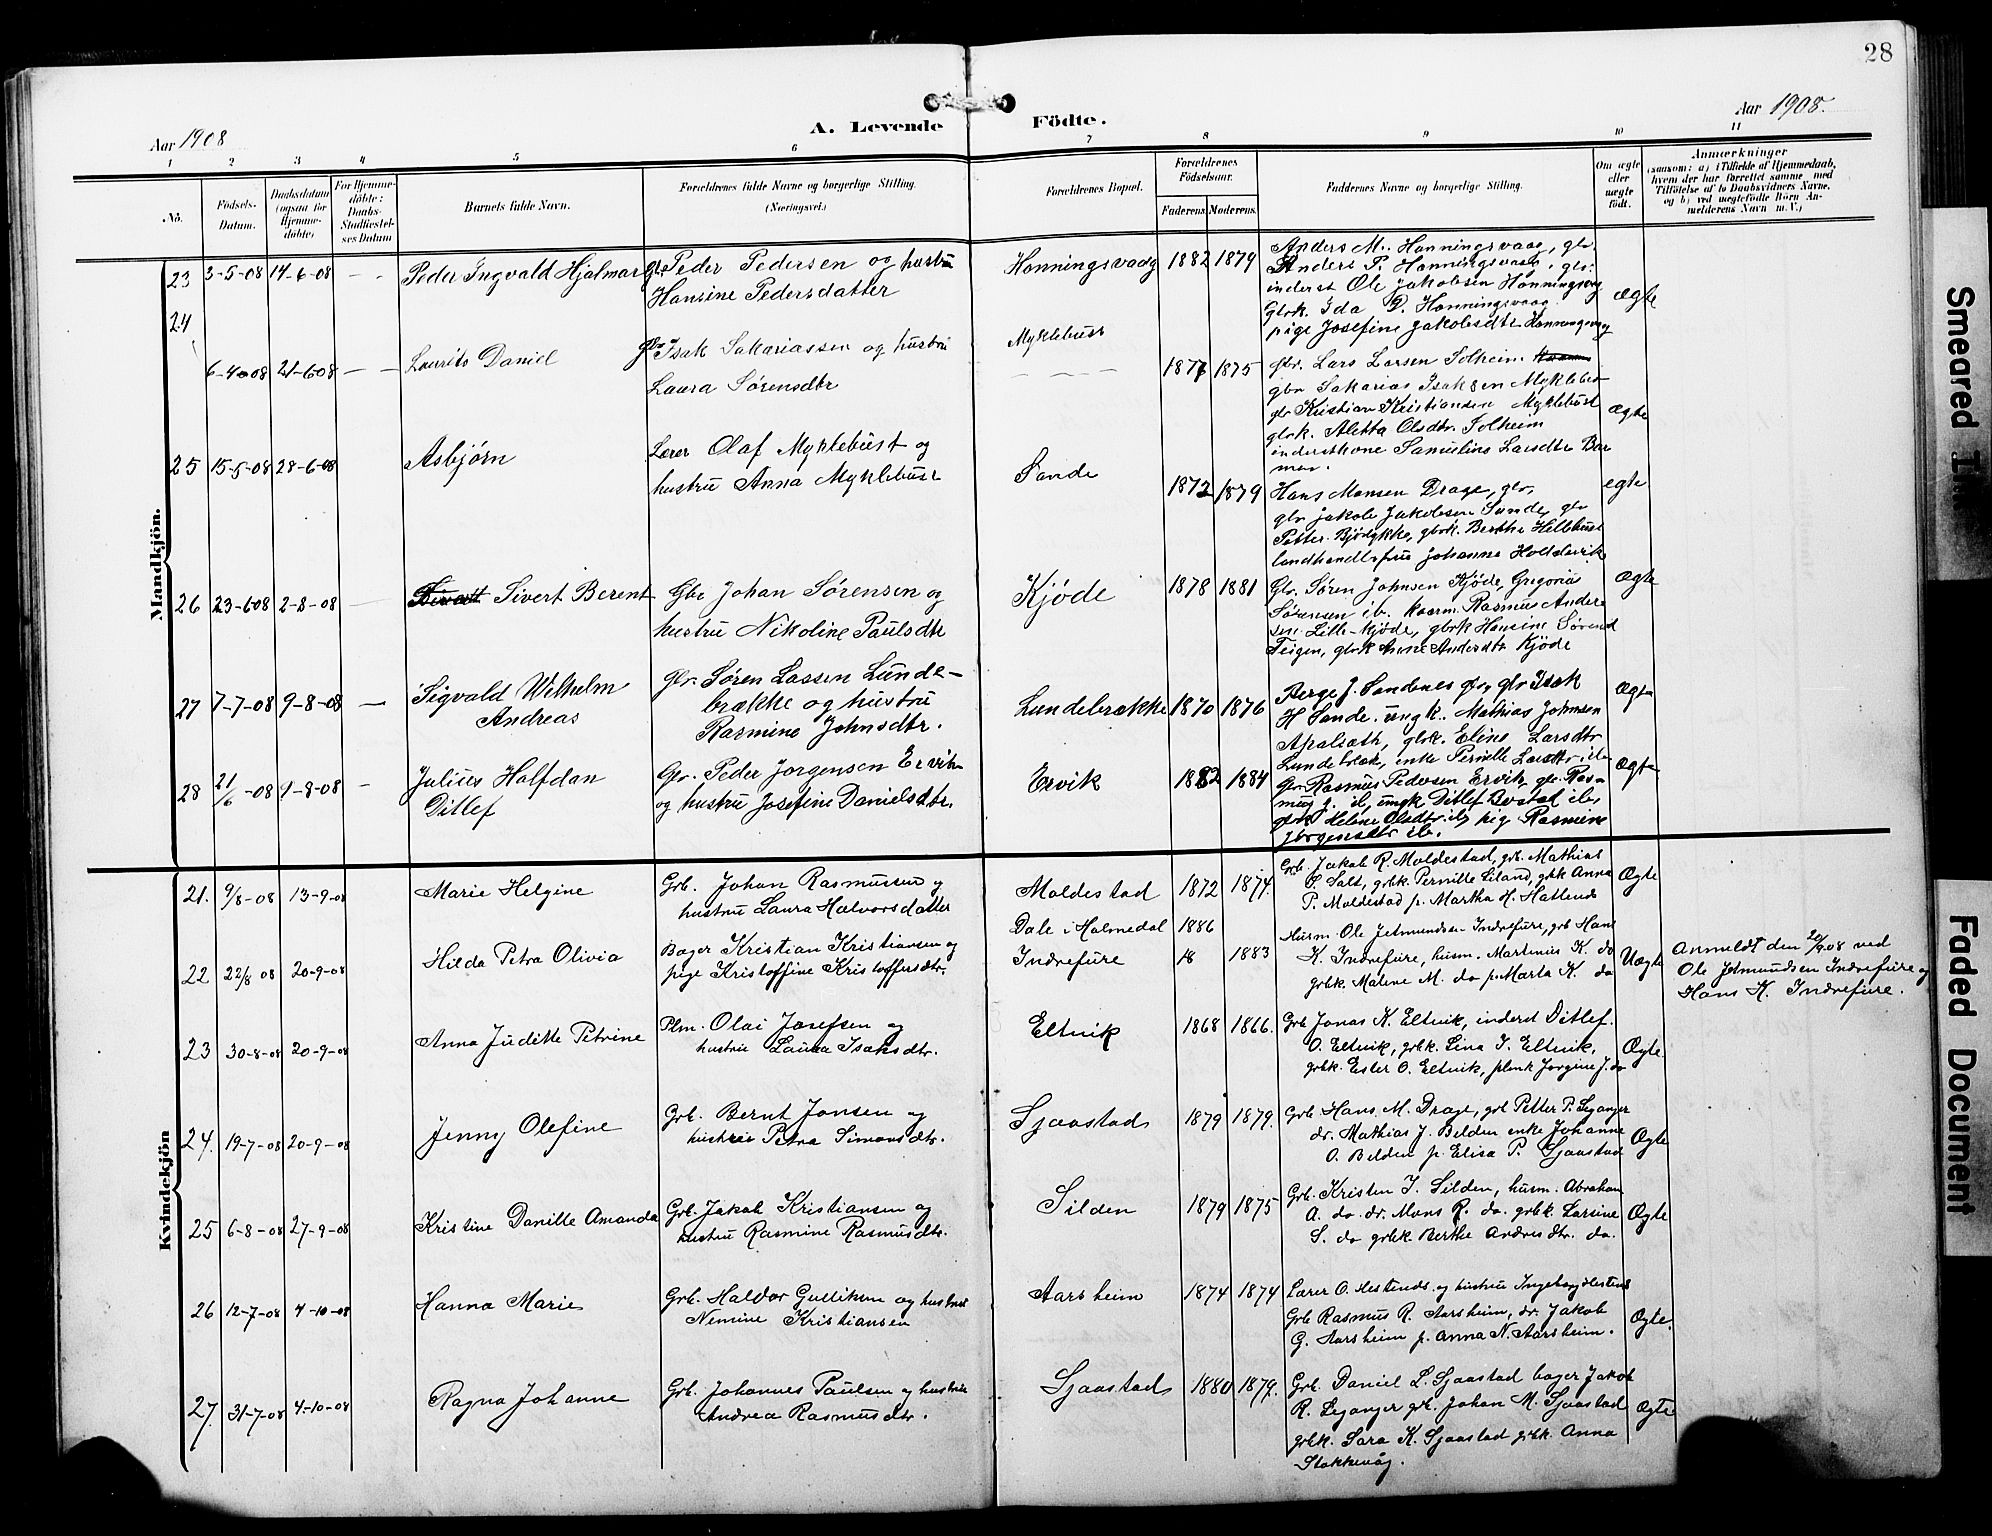 28
Aar 1908
A. Levende Födte.
Aar 1908.
1 2 3 4 5 6 7 8 9 10 11
No.
Födsels-
Datum.
Daabsdatum
(ogsaa for
Hjemme-
döbte)
For Hjemme-
döbte:
Daabs-
Stadfæstel-
ses Datum
Barnets fulde Navn.
Forældrenes fulde Navne og borgerlige Stilling.
(Næringsvei.)
Forældrenes Bopæl.
Forældrenes
Födselsaar.
Faderens. Moderens.
Faddernes Navne og borgerlige Stilling.
Om ægte
eller
uægte
födt.
Anmærkninger
(saasom: a) i Tilfælde af Hjemmedaab,
hvem der har forrettet samme, med
Tilföielse af to Daabsvidners Navne,
og b) ved uægtefödte Börn An-
melderens Navn m. V.)
Mandkjön.
23 3-5-08 14-6-08 — Peder Ingvald Hjalmar
Gbr Peder Pedersen og hustru
Hansine Pedersdatter
Honningsvaag 1882 1879
Anders M. Honningsvaag, gbr.
Anders P. Honningsvaag, gbr.
inderst Ole Jakobsen Honningsvag
Gbrk. Ida D. Honningsvaag
pige Josefine Jakobsdtr Honningsvag
ægte
24 6-4-08 21-6-08 — Laurits Daniel
gbr Isak Sakariassen og hustru
Laura Sørensdtr
Myklebust 1877 1875
gbr. Lars Larsen Solheim
gbr Sakarias Isaksen Myklebust
gbr Kristian Kristiansen Myklebust
gbrk. Aletta Olsdtr. Solheim
inderstkone Samuline Larsdtr Bar
man.
ægte
25 15-5-08 28-6-08 Asbjørn
Lærer Olaf Myklebust og
hustru Anna Myklebust
Sande 1872 1879
Hans Monsen Drage, gbr,
gbr Jakob Jakobsen Sande, gbr
Petter Bjødykke, gbrk. Berthe Hellebust
landhandlerfrue Johanne Holdervik
egte
26 23-6-08 2-8-08 — Sivert Berent
Gbr Johan Sørensen og
hustru Nikoline Paulsdtr
Kjøde 1878 1881
Gbr. Søren Johnsen Kjøde, Grigorius
Sørensen ib. kaarm. RasmusAnder
sen Lille-Kjøde, gbrk Hansine Sørensd
Teigen, gbrk Anne Andersdtr Kjøde
Ægte
27 7-7-08 9-8-08 — Sigvald Wilhelm
Andreas
Gbr. Søren Lassen Lunde-
brække og hustru
Rasmine Johnsdtr.
Lundebrække 1870 1876
Berge J. Sandenes gbr, gbr Isak
H Sande. ungk. Mathias Johnsen
Apalsæth, gbrk. Eline Larsdtr
Lundebræk, enke Pernille Larsdtr. ib
Ægte
28 21/6 -08 9-8-08 — Julius Halfdan
Ditlef
Gbr. Peder Jorgensen Ervik
og hustru Josefine Danielsdtr.
Ervik 1882 1884
Gbr Rasmus Pedersen Ervik, gbr. Ras-
mus J. ib, ungk Ditlef Berstad ib,
gbrk Helene Olsdtr ib, pig Rasmine
Jorgensdtr ib.
Ægte
Kvindekjön
21. 9/8-08 13-9-08 Marie Helgine
Grb. Johan Rasmussen og
hustru Laura Halvorsdatter
Moldestad 1872 1874.
Grb Jakob R. Moldestad, grb. Mathias
S. Salt, grbk. Pernille Liland, gbk Anna
P. Moldestad p. Martha H. Hatlends
Ægte
22 22/8 08 20-9-08 Hilda Petra Olivia
Bager Kristian Kristiansen og
pige Kristoffine Kristoffersdtr.
Dale i Holmedal 1886
Indrefure 18 1883
Husm. Ole Jetmundsen Indrefure, grb Hans
K. Indrefure, husm. Martinus K. do
grbk. Malene M. do p. Marta K. do
Uægte
Anmeldt den 20/9.08 ved
Ole Jetmundsen Indrefure og
Hans K. Indrefure.
23 30-8-08 20-9-08 Anna Juditte Petrine
Plm. Olai Josefsen og
hustru Laura Isaksdtr.
Eltvik 1868 1866.
Grb Jonas K. Eltvik, inderst Ditlef
O. Eltvik, grbk. Lina I. Eltvik,
grbk. Ester O. Eltvik, plmk Jorgine J. do
Ægte.
24. 19-7-08 20-9-08 Jenny Olefine
Grb. Bernt Jonsen og
hustru Petra Simonsdtr.
Sjaastad 1879 1879.
Grb Hans M. Drage, grb Petter P. Leganger
dr. Mathias J. Belden enke Johanne
O. Belden p. Elisa P. Sjaastad
Ægte
25 6-8-08 27-9-08 Kristine Danille Amanda
Grb. Jakob Kristiansen og
hustru Rasmine Rasmusdtr.
Silden 1879 1875
Grb. Kristen I. Silden, husm. Abraham
A. do. dr. Mons R. do. grbk. Larsine
S. do grbk. Berthe Andreasdtr. do.
Ægte
26 12-7-08 4-10-08 Hanna Marie
Grb. Haldor Gulliksen og hustru
Nemine Kristiansen
Aarsheim 1874 1874
Lærer O. Hestends, og hustru Ingeborg Hestens
Grb Rasmus R. Aarsheim, dr. Jakob
G. Aarsheim p. Anna N. Aarsheim.
Ægte.
27. 31-7-08 4-10-08 Ragna Johanne
Grb. Johannes Paulsen og hustru
Andrea Rasmusdtr.
Sjaastad 1880 1879.
Grb. Daniel L. Sjaastad bager Jakob
R. Leganger grb. Johan M. Sjaastad
grbk. Sara K. Sjaastad grbk. Anna
Stokkevåg.
Ægte
Smeared
Faded Document